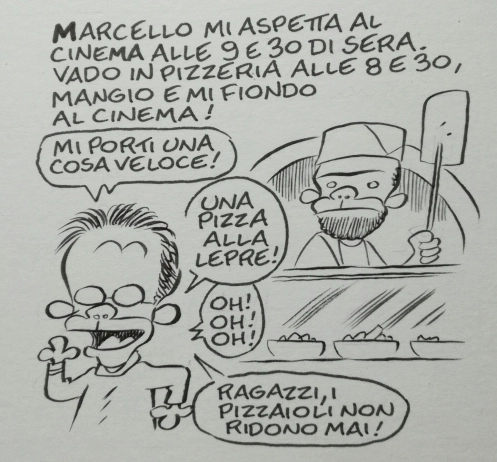 MARCELLO MI ASPETTA AL
CINEMA ALLE 9 E 30 DI SERA.
VADO IN PIZZERIA ALLE 8 E 30,
MANGIO E MI FIONDO
AL CINEMA!
MI PORTI UNA
COSA VELOCE!
UNA
PIZZA
ALLA
LEPRE!
OH!
OH!
OH!
RAGAZZI, I
PIZZAIOLI NON
RIDONO MAI!